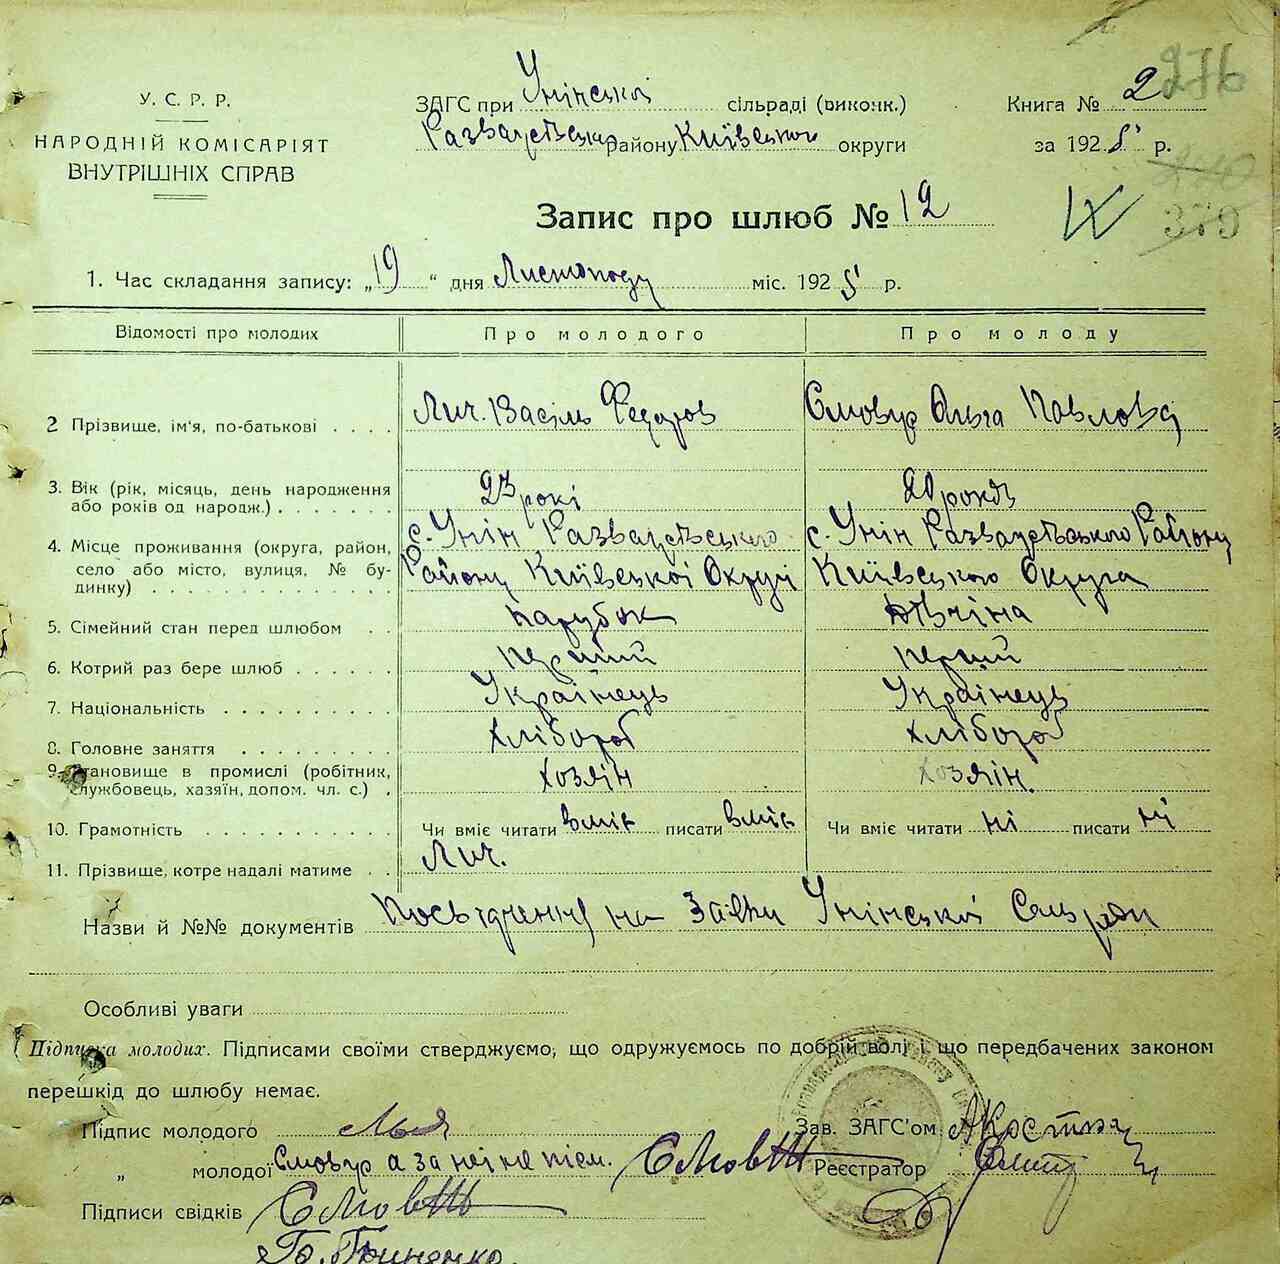 276
У. С. Р. Р.
НАРОДНІЙ КОМІСАРІЯТ
ВНУТРІШНІХ СПРАВ
ЗАГС при Унінській сільраді (виконк.)
району Київського округи
Книга № 2
за 1925 р.
379
Запис про шлюб № 12
1. Час складання запису: „19" дня Листопаду міс. 1925 р.
Відомості про молодих Про молодого Про молоду
2 Прізвище, ім'я, по-батькові . . . . Лич. Васіль Федоров Ольга Павлова
3. Вік (рік, місяць, день народження або років од народж.) . . . . . . . 23 рокі 20 років
4. Місце проживання (округа, район, село або місто, вулиця, № будинку) . . . . . . . . . . . . . .
с. Унін
Району Київської Округі
с. Унін Району
Київського Округа
5. Сімейний стан перед шлюбом . . Парубок Дівчіна
6. Котрий раз бере шлюб . . . . . . перший перший
7. Національність . . . . . . . . . . Українець Українець
8. Головне заняття . . . . . . . . . Хлібороб Хлібороб
9. Становище в промислі (робітник, службовець, хазяїн, допом. чл. с.) . Хозяін Хозяін.
10. Грамотність . . . . . . . . . . . Чи вміє читати вміє писати вміє Чи вміє читати ні писати ні
11. Прізвище, котре надалі матиме . . Лич.
Назви й №№ документів на Унінської
Особливі уваги
Підписка молодих. Підписами своїми стверджуємо, що одружуємось по добрій волі і що передбачених законом
перешкід до шлюбу немає.
Підпис молодого
Зав. ЗАГС'ом
„ молодої а за неі не пісм.
Реєстратор
Підписи свідків